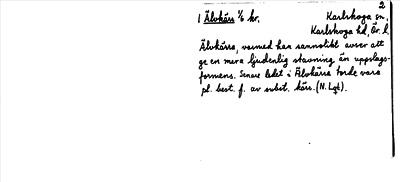 2
1 Älvkärr 1/6 kr. Karlskoga sn,
Karlskoga hd, Ör. l.
Älvkärra, varmed han sannolikt avser att
ge en mera ljudenlig stavning än uppslags-
formens. Senare ledet i Älvkärra torde vara
pl. best. f. av subst. kärr. (N. Lgt).